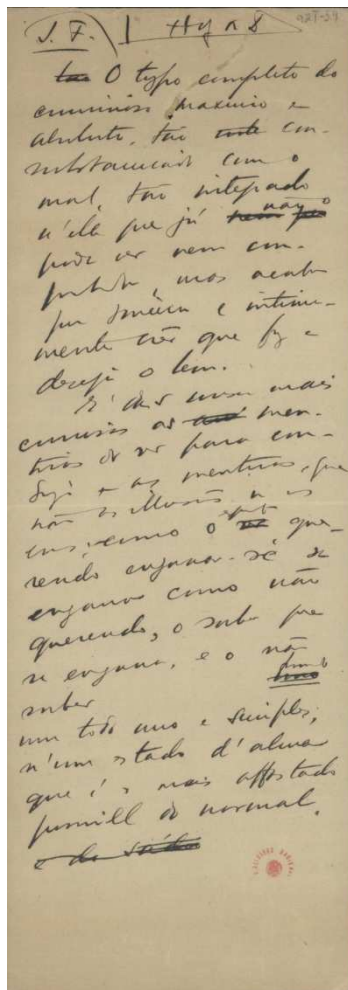 J. F.
927-39
O typo completo do
criminoso maximo e
absoluto, tão con-
substanciado com o
mal, tão integrado
n'elle que já não o
pode ver nem com-
mas acaba
por sincera e intima-
mente crêr que faz e
deseja o bem.
mais
curiosas as men-
tiras do ser para com-
sigo as mentiras, que
não as illusões,
como o que-
rendo enganar-se se
enganar como não
querendo, o saber que
se engana, e o não
saber
um todo uno e simples,
n'um estado d'alma
que é o mais affastado
possivel do normal.